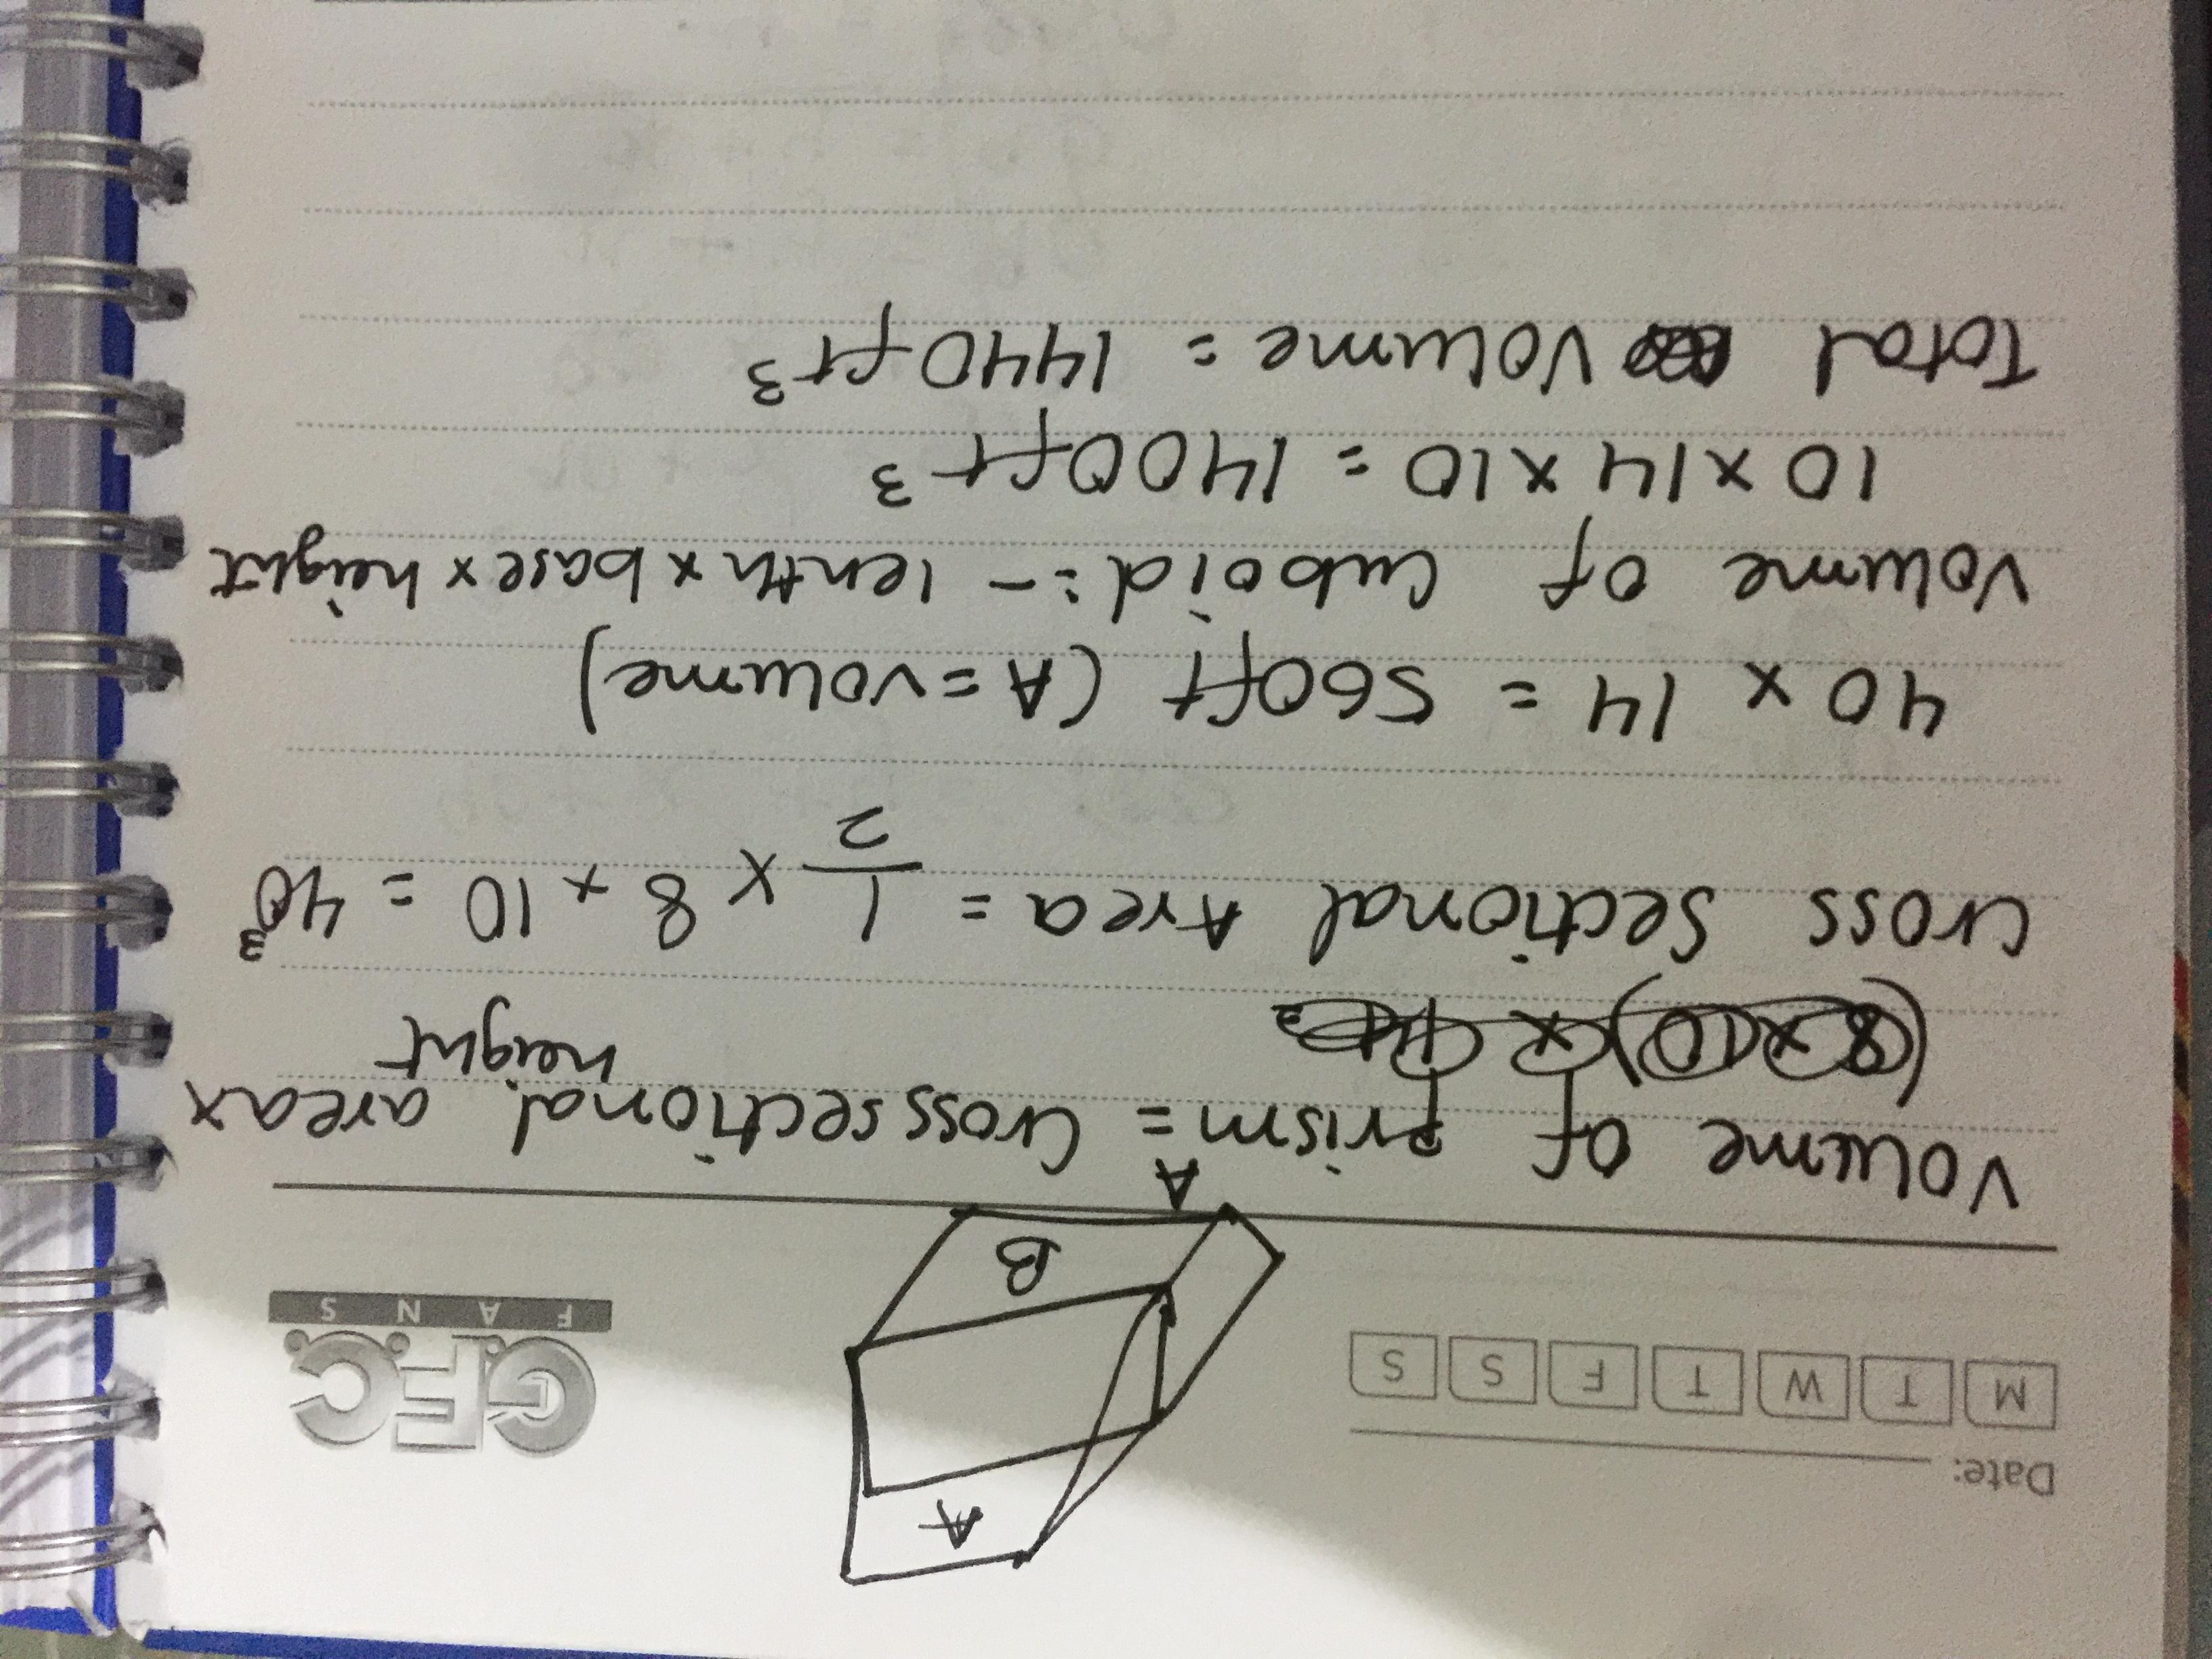 Date:
M T W T F S S
G.F.C.
FANS
A
B
A
Volume of Prism = Cross sectional area x
height
Cross Sectional Area = 1/2 x 8 x 10 = 40³
40 x 14 = 560ft (A = volume)
Volume of Cuboid :- lenth x base x height
10 x 14 x 10 = 1400ft³
Total Volume = 1440ft³